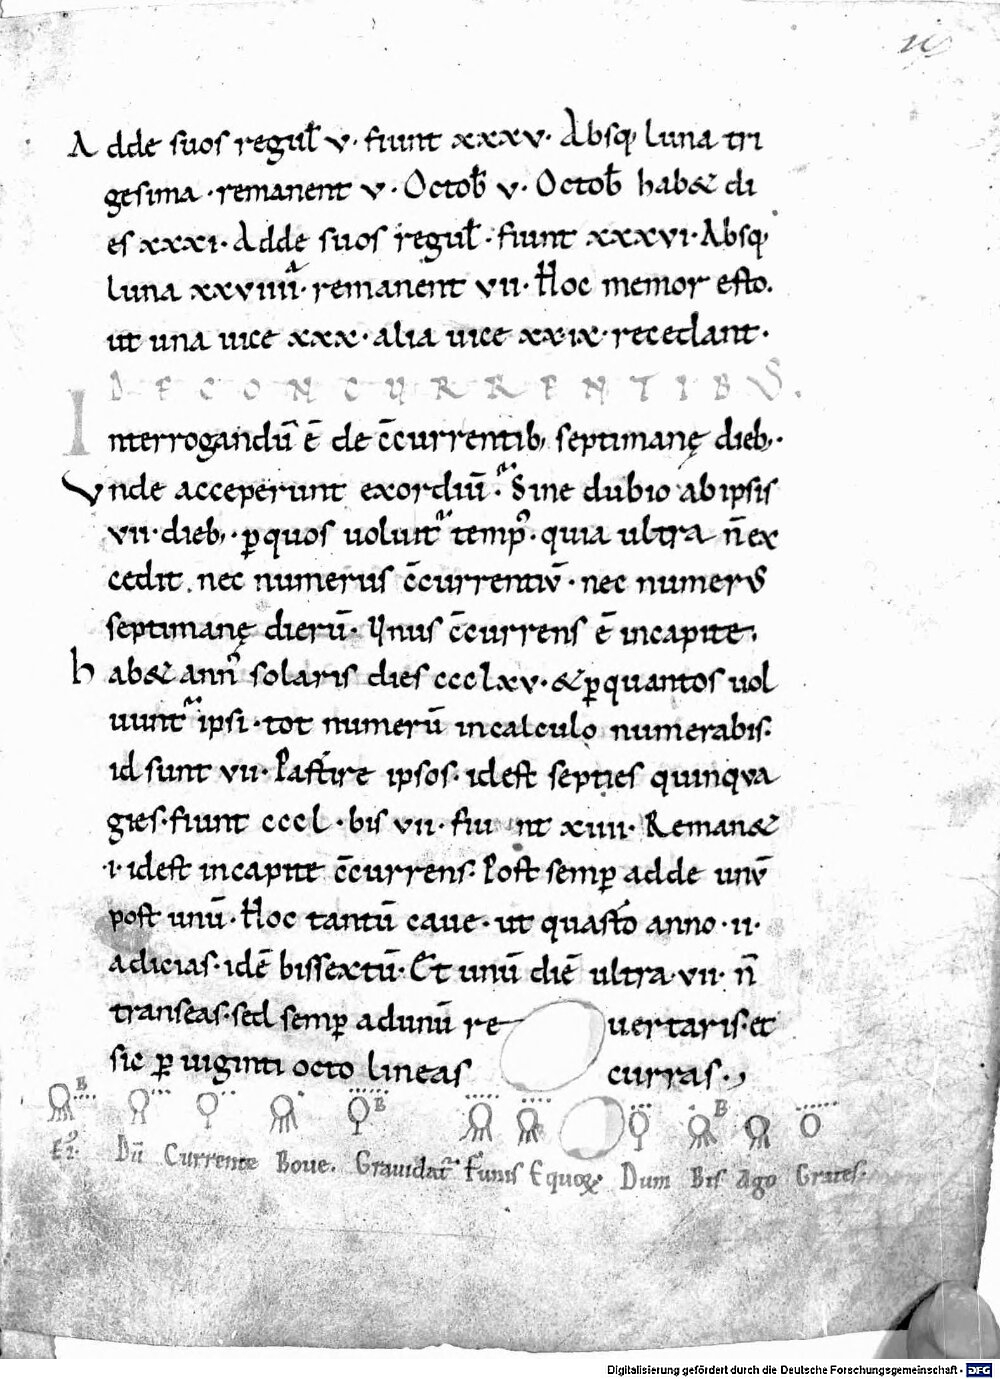 Adde suos regul̅ v· fiunt xxxv· Absq; luna tri
gesima · remanent v · Octob̅ v · Octob̅ hab& di
es xxxi· Adde suos regul̅· fiunt xxxvi· Absq;
luna xxviiii· remanent vii· Hoc memor esto.
ut una uice xxx· alia uice xx·ix· recedant·
DE CONCURRENTIBUS.
Interrogandu̅ e̅ de c̅currentib; septimanę dieb;·
Vnde acceperunt exordiu̅· Sine dubio ab ipsis
vii· dieb;· ꝑ quos uoluit᷑ temp᷒· quia ultra n̅ ex
cedit, nec numerus c̅currentiu̅· nec numerus
septimanę dieru̅· Vnus c̅currens e̅ in capite.
hab& ann᷒ solaris dies ccclxv· & ꝑ quantos uol
uunt᷑ ipsi· tot numeru̅ in calculo numerabis·
id sunt vii· Partire ipsos· idest septies quinqua
gies· fiunt cccl· bis vii· fiunt xiiii· Reman&
·i· idest in capite c̅currens· Post semꝑ adde unu̅
post unu̅· Hoc tantu̅ caue· ut quarto anno ·ii·
adicias· ide̅ bissextu̅· Et unu̅ die̅ ultra vii· n̅
transeas· sed semꝑ ad unu̅ re uertaris· et
sic ꝑ uiginti octo lineas curras·
B B B
Du̅ Currente Boue. Grauidat᷑ Funis Equoꝝ Dum Bis Ago Grates·
Digitalisierung gefördert durch die Deutsche Forschungsgemeinschaft - DFG